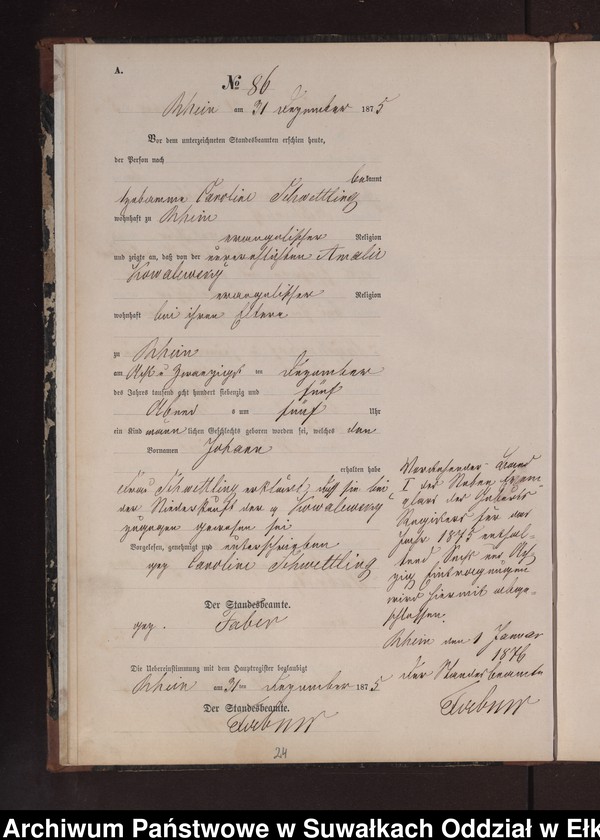 A.
№ 86
Rhein am 31 Dezember 1875
Vor dem unterzeichneten Standesbeamten erschien heute,
der Person nach
bekannt
Hebamme Caroline Schwettling
wohnhaft zu Rhein
evangelischer Religion
und zeigte an, daß von der unverehelichten Amalie
Kowalewsky
evangelischer Religion
wohnhaft bei ihren Eltern
zu Rhein
am Acht u Zwanzigs ten Dezember
des Jahres tausend acht hundert siebenzig und fünf
Abend s um fünf Uhr
ein Kind männlichen Geschlechts geboren worden sei, welches den
Vornamen Johann
erhalten habe
Frau Schwettling erklärte, daß sie bei
der Niederkunft der p Kowalewsky
zugegen gewesen sei
Vorgelesen, genehmigt und unterschrieben
gez Caroline Schwettling
Der Standesbeamte.
gez. Faber
Die Uebereinstimmung mit dem Hauptregister beglaubigt
Rhein am 31ten Dezember 1875
Der Standesbeamte.
Vorstehender Band
I des Neben Exem
plars des Geburts
Registers für das
Jahr 1875 enthal-
tend Sechs und Acht
zig Eintragungen
wird hiermit abge-
schlossen.
Rhein den 1 Januar
1876
Der Standesbeamte
24
Archiwum Państwowe w Suwałkach Oddział w Ełk